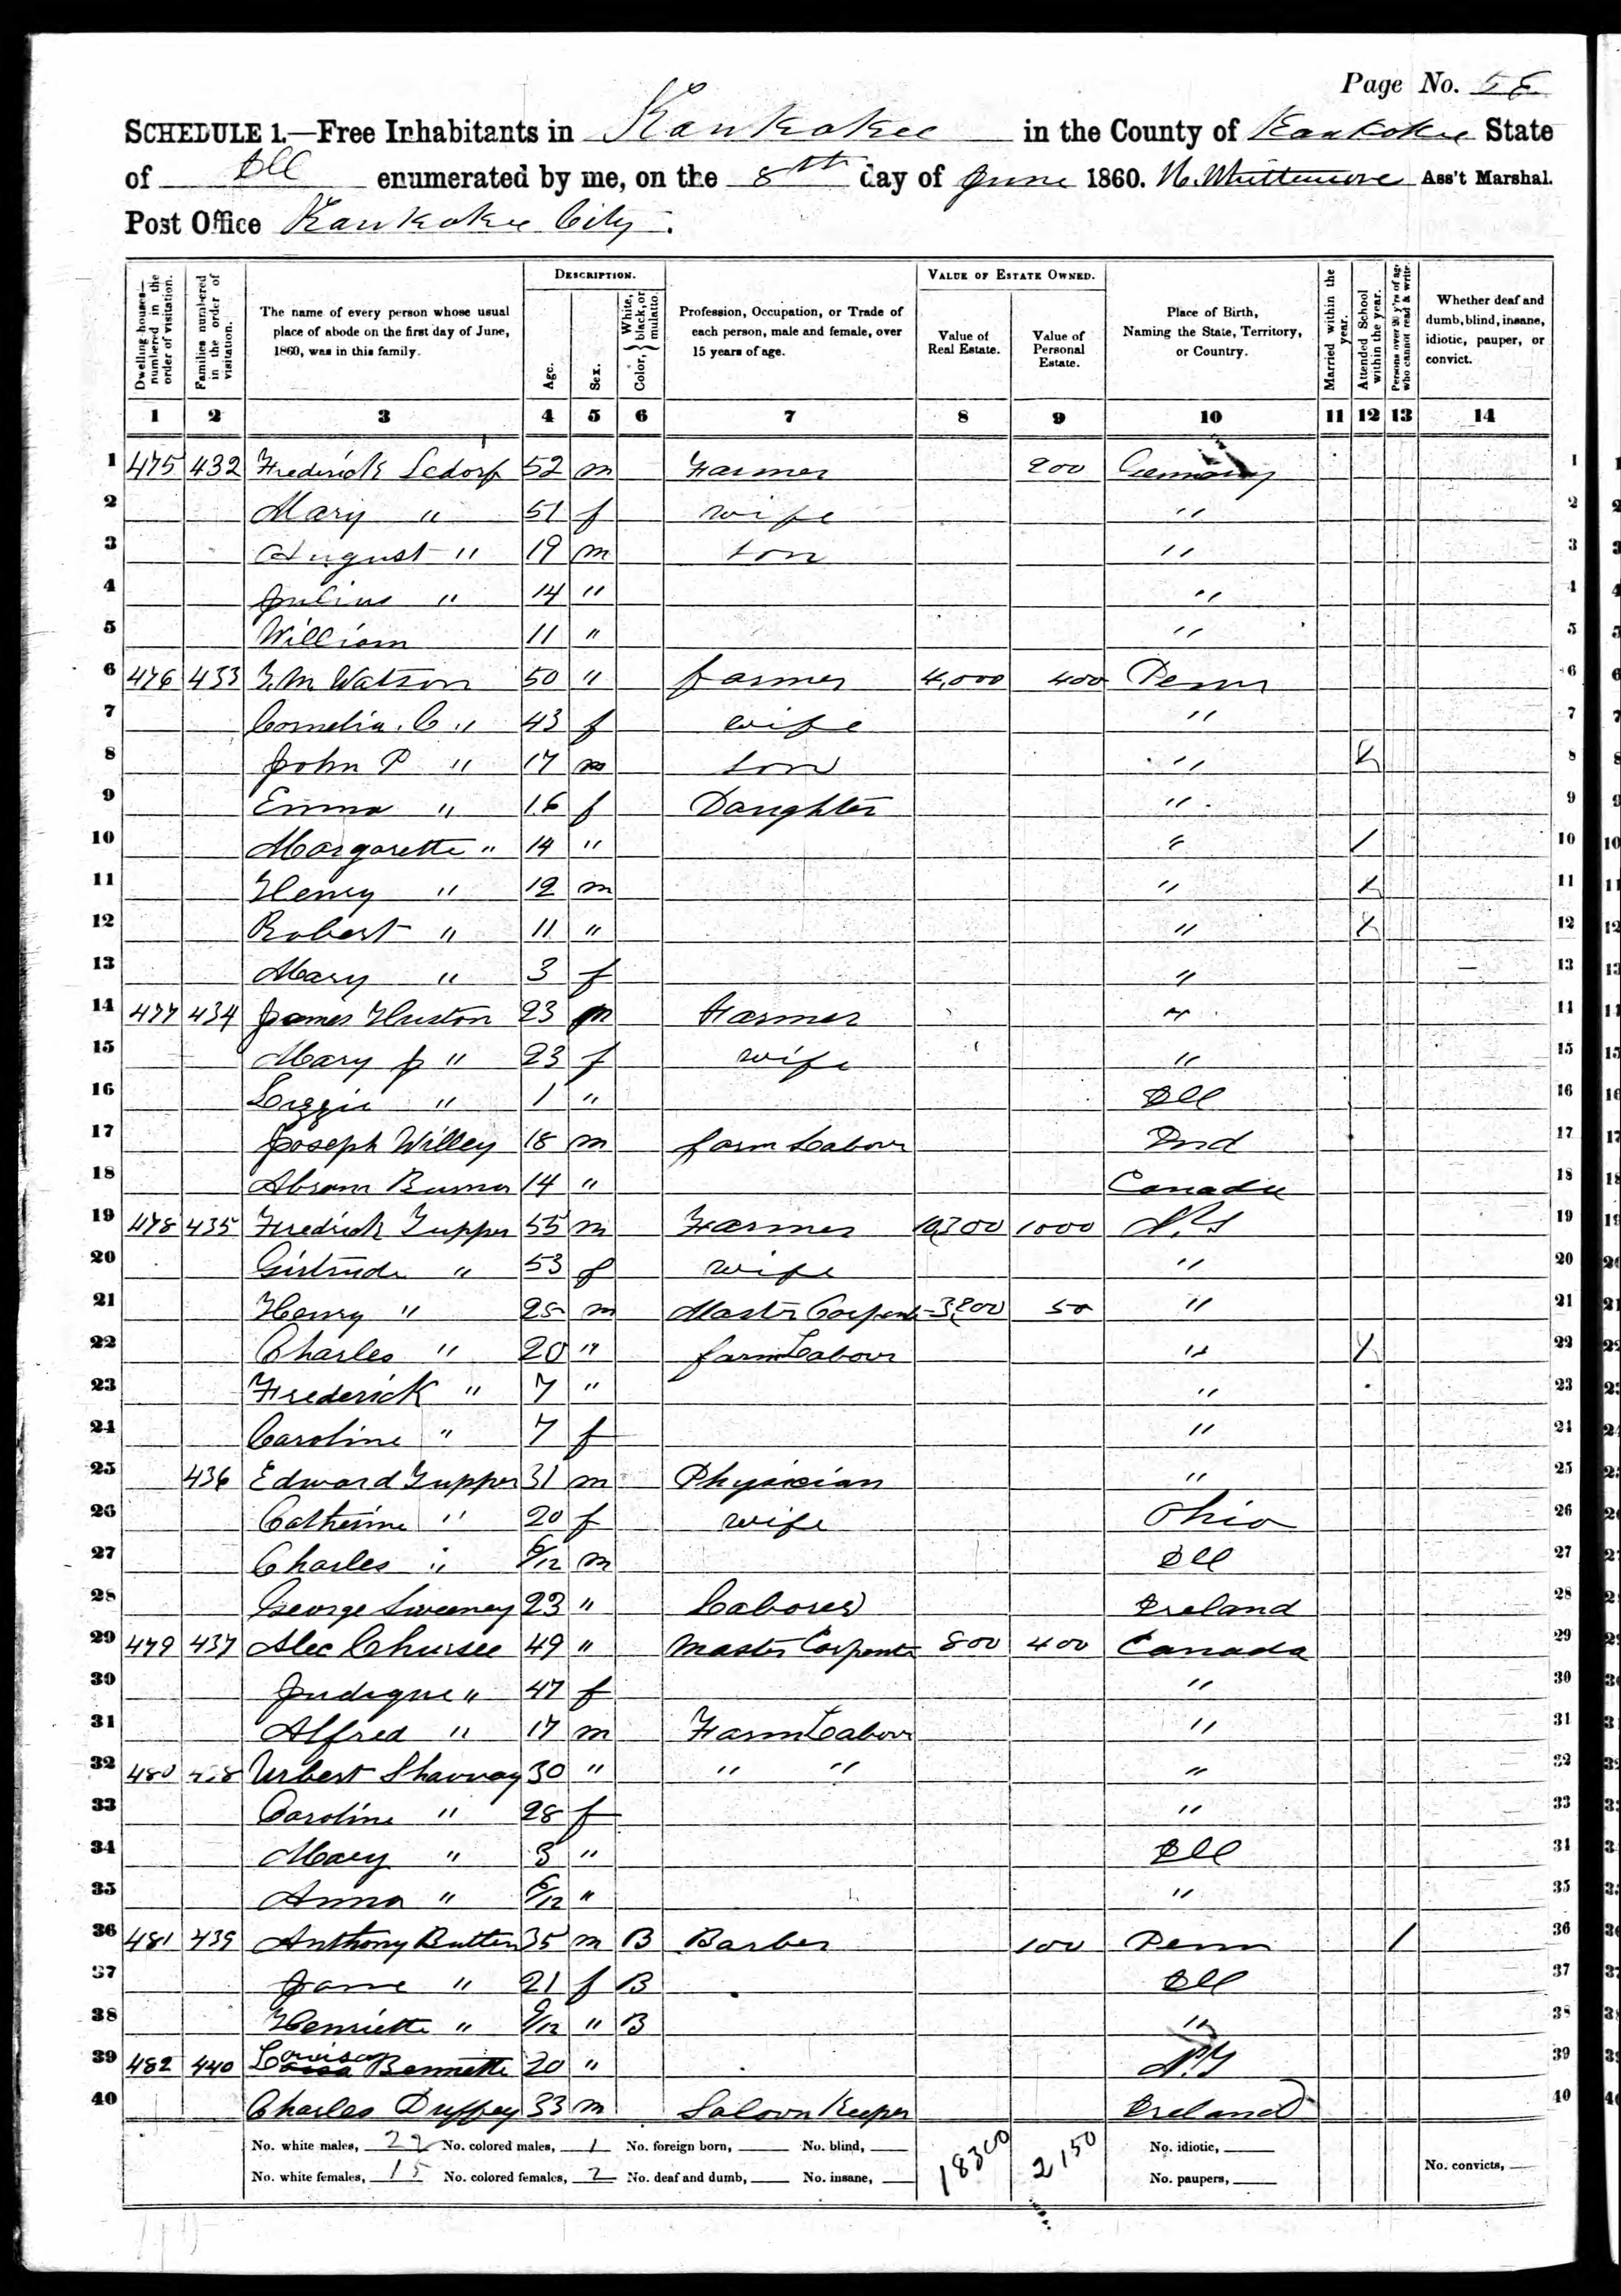 Page No. 58
SCHEDULE 1.—Free Inhabitants in Kankakee in the County of Kankakee State
of Ill enumerated by me, on the 8th day of June 1860. N. Whittemore Ass't Marshal.
Post Office Kankakee City.
DESCRIPTION. VALUE OF ESTATE OWNED.
Dwelling-houses—numbered in the order of visitation. Families numbered in the order of visitation. The name of every person whose usual place of abode on the first day of June, 1860, was in this family. Age. Sex. Color, { White, black, or mulatto. Profession, Occupation, or Trade of each person, male and female, over 15 years of age. Value of Real Estate. Value of Personal Estate. Place of Birth, Naming the State, Territory, or Country. Married within the year. Attended School within the year. Persons over 20 y'rs of age who cannot read & write. Whether deaf and dumb, blind, insane, idiotic, pauper, or convict.
1 2 3 4 5 6 7 8 9 10 11 12 13 14
1 475 432 Frederick Sedorf 52 m Farmer 200 Germany 1
2 Mary " 51 f wife " 2
3 August " 19 m son " 3
4 Julius " 14 " " 4
5 William 11 " " 5
6 476 433 Watson 50 " farmer 4,000 400 Penn 6
7 Cornelia C " 43 f wife " 7
8 John P " 17 m son " 8
9 Emma " 16 f Daughter " 9
10 Margarette " 14 " " / 10
11 Henry " 12 m " 11
12 Robert " 11 " " 12
13 Mary " 3 f " 13
14 477 434 James Huston 23 m Farmer " 14
15 Mary J " 23 f wife " 15
16 Lizzie " 1 " Ill 16
17 Joseph Willey 18 m farm Labour Ind 17
18 Abram 14 " Canada 18
19 478 435 Fredrick Tupper 55 m Farmer 10,300 1000 19
20 Girtrude " 53 f wife " 20
21 Henry " 25 m Master Carpent 50 " 21
22 Charles " 20 " farm Labour " 22
23 Frederick " 7 " " 23
24 Caroline " 7 f " 24
25 436 Edward Tupper 31 m Physician " 25
26 Catherine " 20 f wife Ohio 26
27 Charles " m Ill 27
28 George Sweeney 23 " Laborer Ireland 28
29 479 437 Alec Chursee 49 " Master Carpenter 800 400 Canada 29
30 Judique " 47 f " 30
31 Alfred " 17 m Farm Labour " 31
32 480 438 Urbert 30 " " " " 32
33 Caroline " 28 f " 33
34 Mary " 3 " Ill 34
35 Anna " " " 35
36 481 439 Anthony Butten 35 m B Barber 100 Penn / 36
37 Jane " 21 f B Ill 37
38 Henriette " " B " 38
39 482 440 Louisa Bennette 20 " N.Y 39
40 Charles Duffey 33 m Saloon Keeper Ireland 40
No. white males, 22 No. colored males, 1 No. foreign born, No. blind, 18300 2,150 No. idiotic,
No. white females, 15 No. colored females, 2 No. deaf and dumb, No. insane, No. paupers, No. convicts,